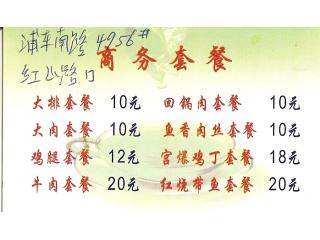 浦东南路 4956#
红山路口
商务套餐
大排套餐 10元 回锅肉套餐 10元
大肉套餐 10元 鱼香肉丝套餐 10元
鸡腿套餐 12元 宫爆鸡丁套餐 18元
牛肉套餐 20元 红烧带鱼套餐 20元